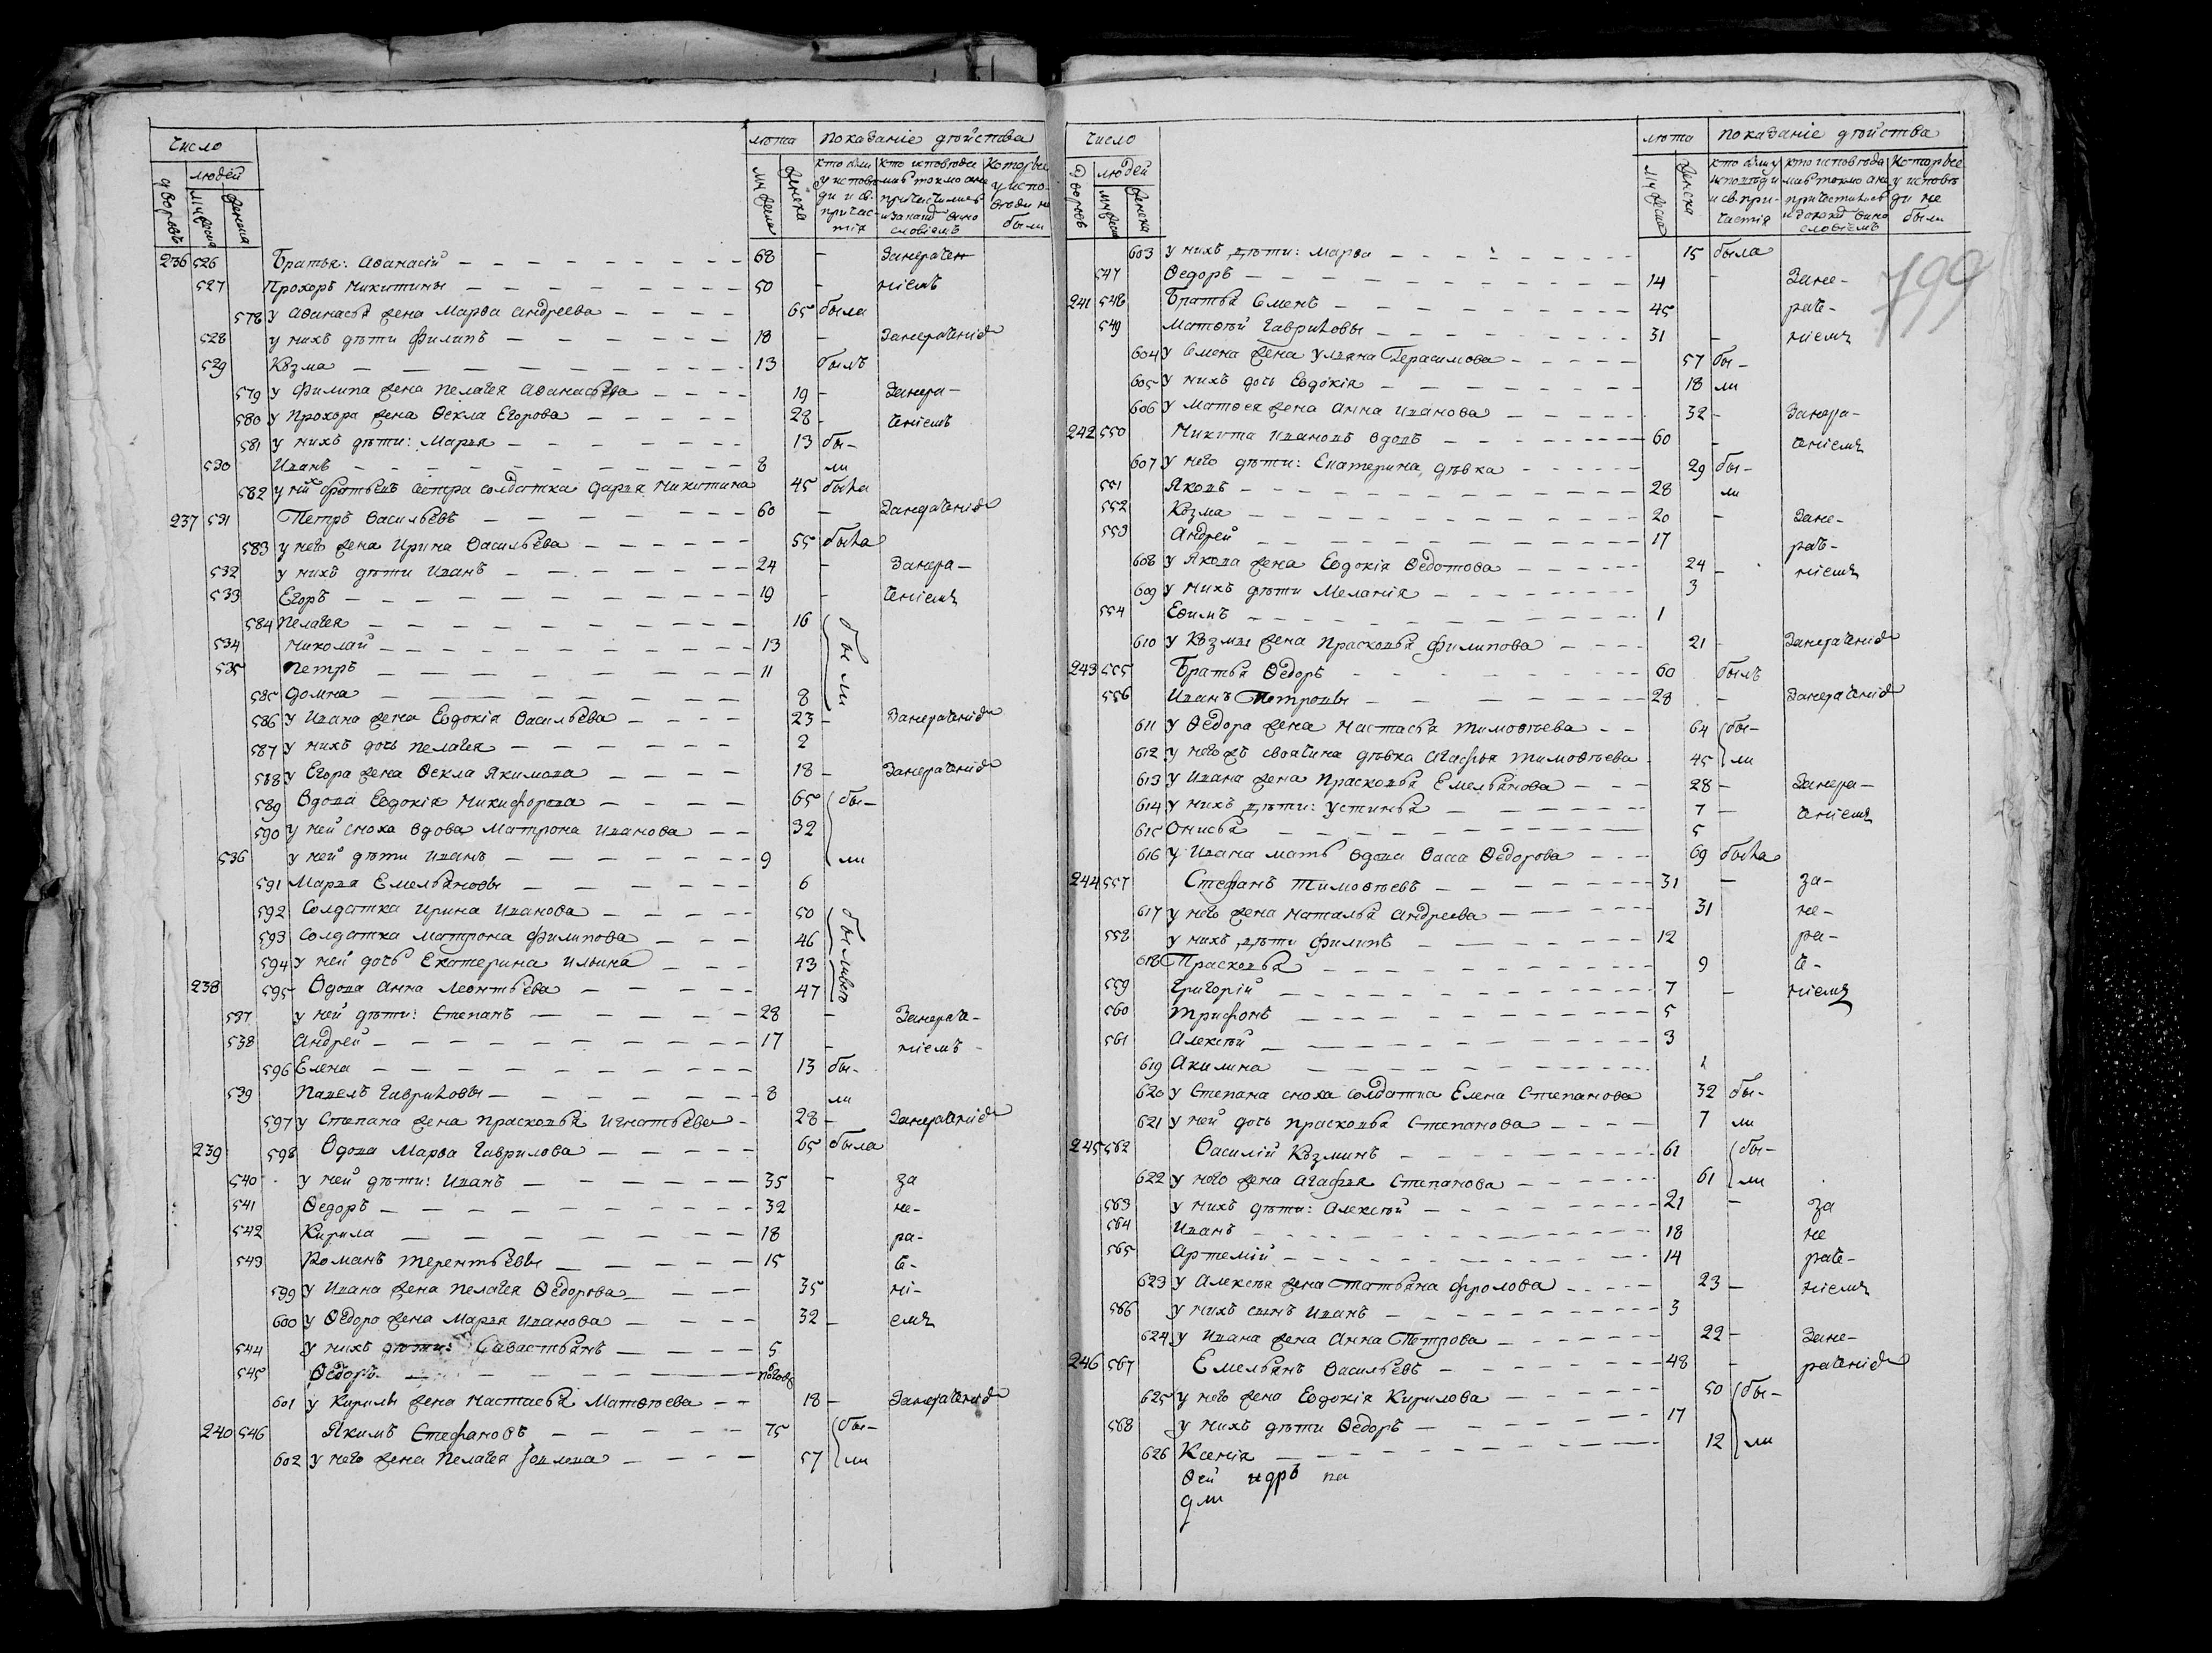 число
людей
дворовъ
мужеска
женска
лѣта
мужеска
женска
показаніе дѣйства
кто были у исповѣди и св. причастія
Которые у исповѣди не были
236 526 Братья: Аѳанасій 68 - Занераче
527 Прохоръ Никитины 50 - ніемъ
578 у Аѳанасья жена Марѳа Андреева 65 была
528 у нихъ дѣти Филипъ 18 - Занераченіе
529 Козма 13 былъ
579 у Филипа жена Пелагея Аѳанасьева 19 - Занера-
580 у Прохора жена Ѳекла Егорова 28 - ченіемъ
581 у нихъ дѣти: Марья 13 бы-
530 Иванъ 8 ли
582 у нихъ братьевъ сестра солдатка Дарья Никитина 45 была
237 531 Петръ Васильевъ 60 - Занераченіе
583 у него жена Ирина Васильева 55 была
532 у нихъ дѣти Иванъ 24 - Занера-
533 Егоръ 19 - ченіемъ
584 Пелагея 16 были
534 Николай 13
535 Петръ 11
585 Домна 8
586 у Ивана жена Евдокія Васильева 23 - Занераченіе
587 у нихъ дочь Пелагея 2
588 у Егора жена Ѳекла Якимова 18 - Занераченіе
589 Вдова Евдокія Никифорова 65 бы-
590 у ней сноха вдова Матрона Иванова 32
536 у ней дѣти Иванъ 9 ли
591 Марья Емельяновы 6
592 Солдатка Ирина Иванова 50
593 Солдатка Матрона Филипова 46 были
594 у ней дочь Екатерина Ильина 13
238 595 Вдова Анна Леонтьева 47
537 у ней дѣти: Степанъ 28 - Занерач-
538 Андрей 17 - ніемъ
596 Елена 13 бы-
539 Павелъ Гавриловы 8 ли
597 у Степана жена Прасковья Игнатьева 28 - Занераченіе
239 598 Вдова Марѳа Гаврилова 65 была
540 у ней дѣти: Иванъ 35 - за
541 Ѳедоръ 32 не-
542 Кирила 18 ра-
543 Романъ Терентьевы 15 ч-
599 у Ивана жена Пелагея Ѳедорова 35 - ні-
600 у Ѳедора жена Марья Иванова 32 - емъ
544 у нихъ дѣти: Савастьянъ 5
545 Ѳедоръ
601 у Кирилы жена Настасья Матѳѣева 18 - Занераченіе
240 546 Якимъ Стефановъ 75 бы-
602 у него жена Пелагея 57 ли
число
людей
дворовъ
мужеска
женска
лѣта
мужеска
женска
показаніе дѣйства
кто были у исповѣди и св. причастія
Которые у исповѣди не были
799
603 у нихъ дѣти: Марѳа 15 была
547 Ѳедоръ 14 - Зане-
241 548 Братья Семенъ 45 рач-
549 Матѳѣй Гавриловы 31 - ніемъ
604 у Семена жена Ульяна Герасимова 57 бы-
605 у нихъ дочь Евдокія 18 ли
606 у Матѳея жена Анна Иванова 32 - Занера-
242 550 Никита Ивановъ вдовъ 60 - ченіемъ
607 у него дѣти: Екатерина, дѣвка 29 бы-
551 Яковъ 28 ли
552 Козма 20 - Зане-
553 Андрей 17 рач-
608 у Якова жена Евдокія Ѳедотова 24 - ніемъ
609 у нихъ дѣти Меланія 3
554 Еѳимъ 1
610 у Козмы жена Прасковья Филипова 21 - Занераченіе
243 555 Братья Ѳедоръ 60 былъ
556 Иванъ Петровы 28 - Занераченіе
611 у Ѳедора жена Настасья Тимоѳѣева 64 бы-
612 у него жъ своячина дѣвка Агафья Тимоѳѣева 45 ли
613 у Ивана жена Прасковья Емельянова 28 - Занера-
614 у нихъ дѣти: Устинья 7 - ченіемъ
615 Онисья 5
616 у Ивана мать вдова Васа Ѳедорова 69 была
244 557 Стефанъ Тимоѳѣевъ 31 - за-
617 у него жена Наталья Андреева 31 не-
558 у нихъ дѣти Филипъ 12 ра-
618 Прасковья 9 ч-
559 Григорій 7 - ніемъ
560 Трифонъ 5
561 Алексѣй 3
619 Акилина 1
620 у Степана сноха солдатка Елена Степанова 32 бы-
621 у ней дочь Прасковья Степанова 7 ли
245 562 Василій Козминъ 61 бы-
622 у него жена Агафья Степанова 61 ли
563 у нихъ дѣти: Алексѣй 21 - за
564 Иванъ 18 не
565 Артемій 14 рач-
623 у Алексѣя жена Татьяна Фролова 23 - ніемъ
566 у нихъ сынъ Иванъ 3
624 у Ивана жена Анна Петрова 22 - Зане-
246 567 Емельянъ Васильевъ 48 - раченіе
625 у него жена Евдокія Кирилова 50 бы-
568 у нихъ дѣти Ѳедоръ 17
626 Ксенія 12 ли